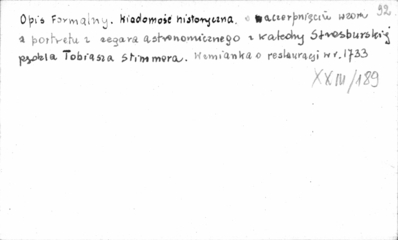 92
Opis Formalny. Wiadomość historyczna. o zaczerpnięciu wzoru
z portretu z zegara astronomicznego z katedry Strasburskiej
pędzla Tobiasza Stimmera. Wzmianka o restauracji w r. 1733
XXIII/189